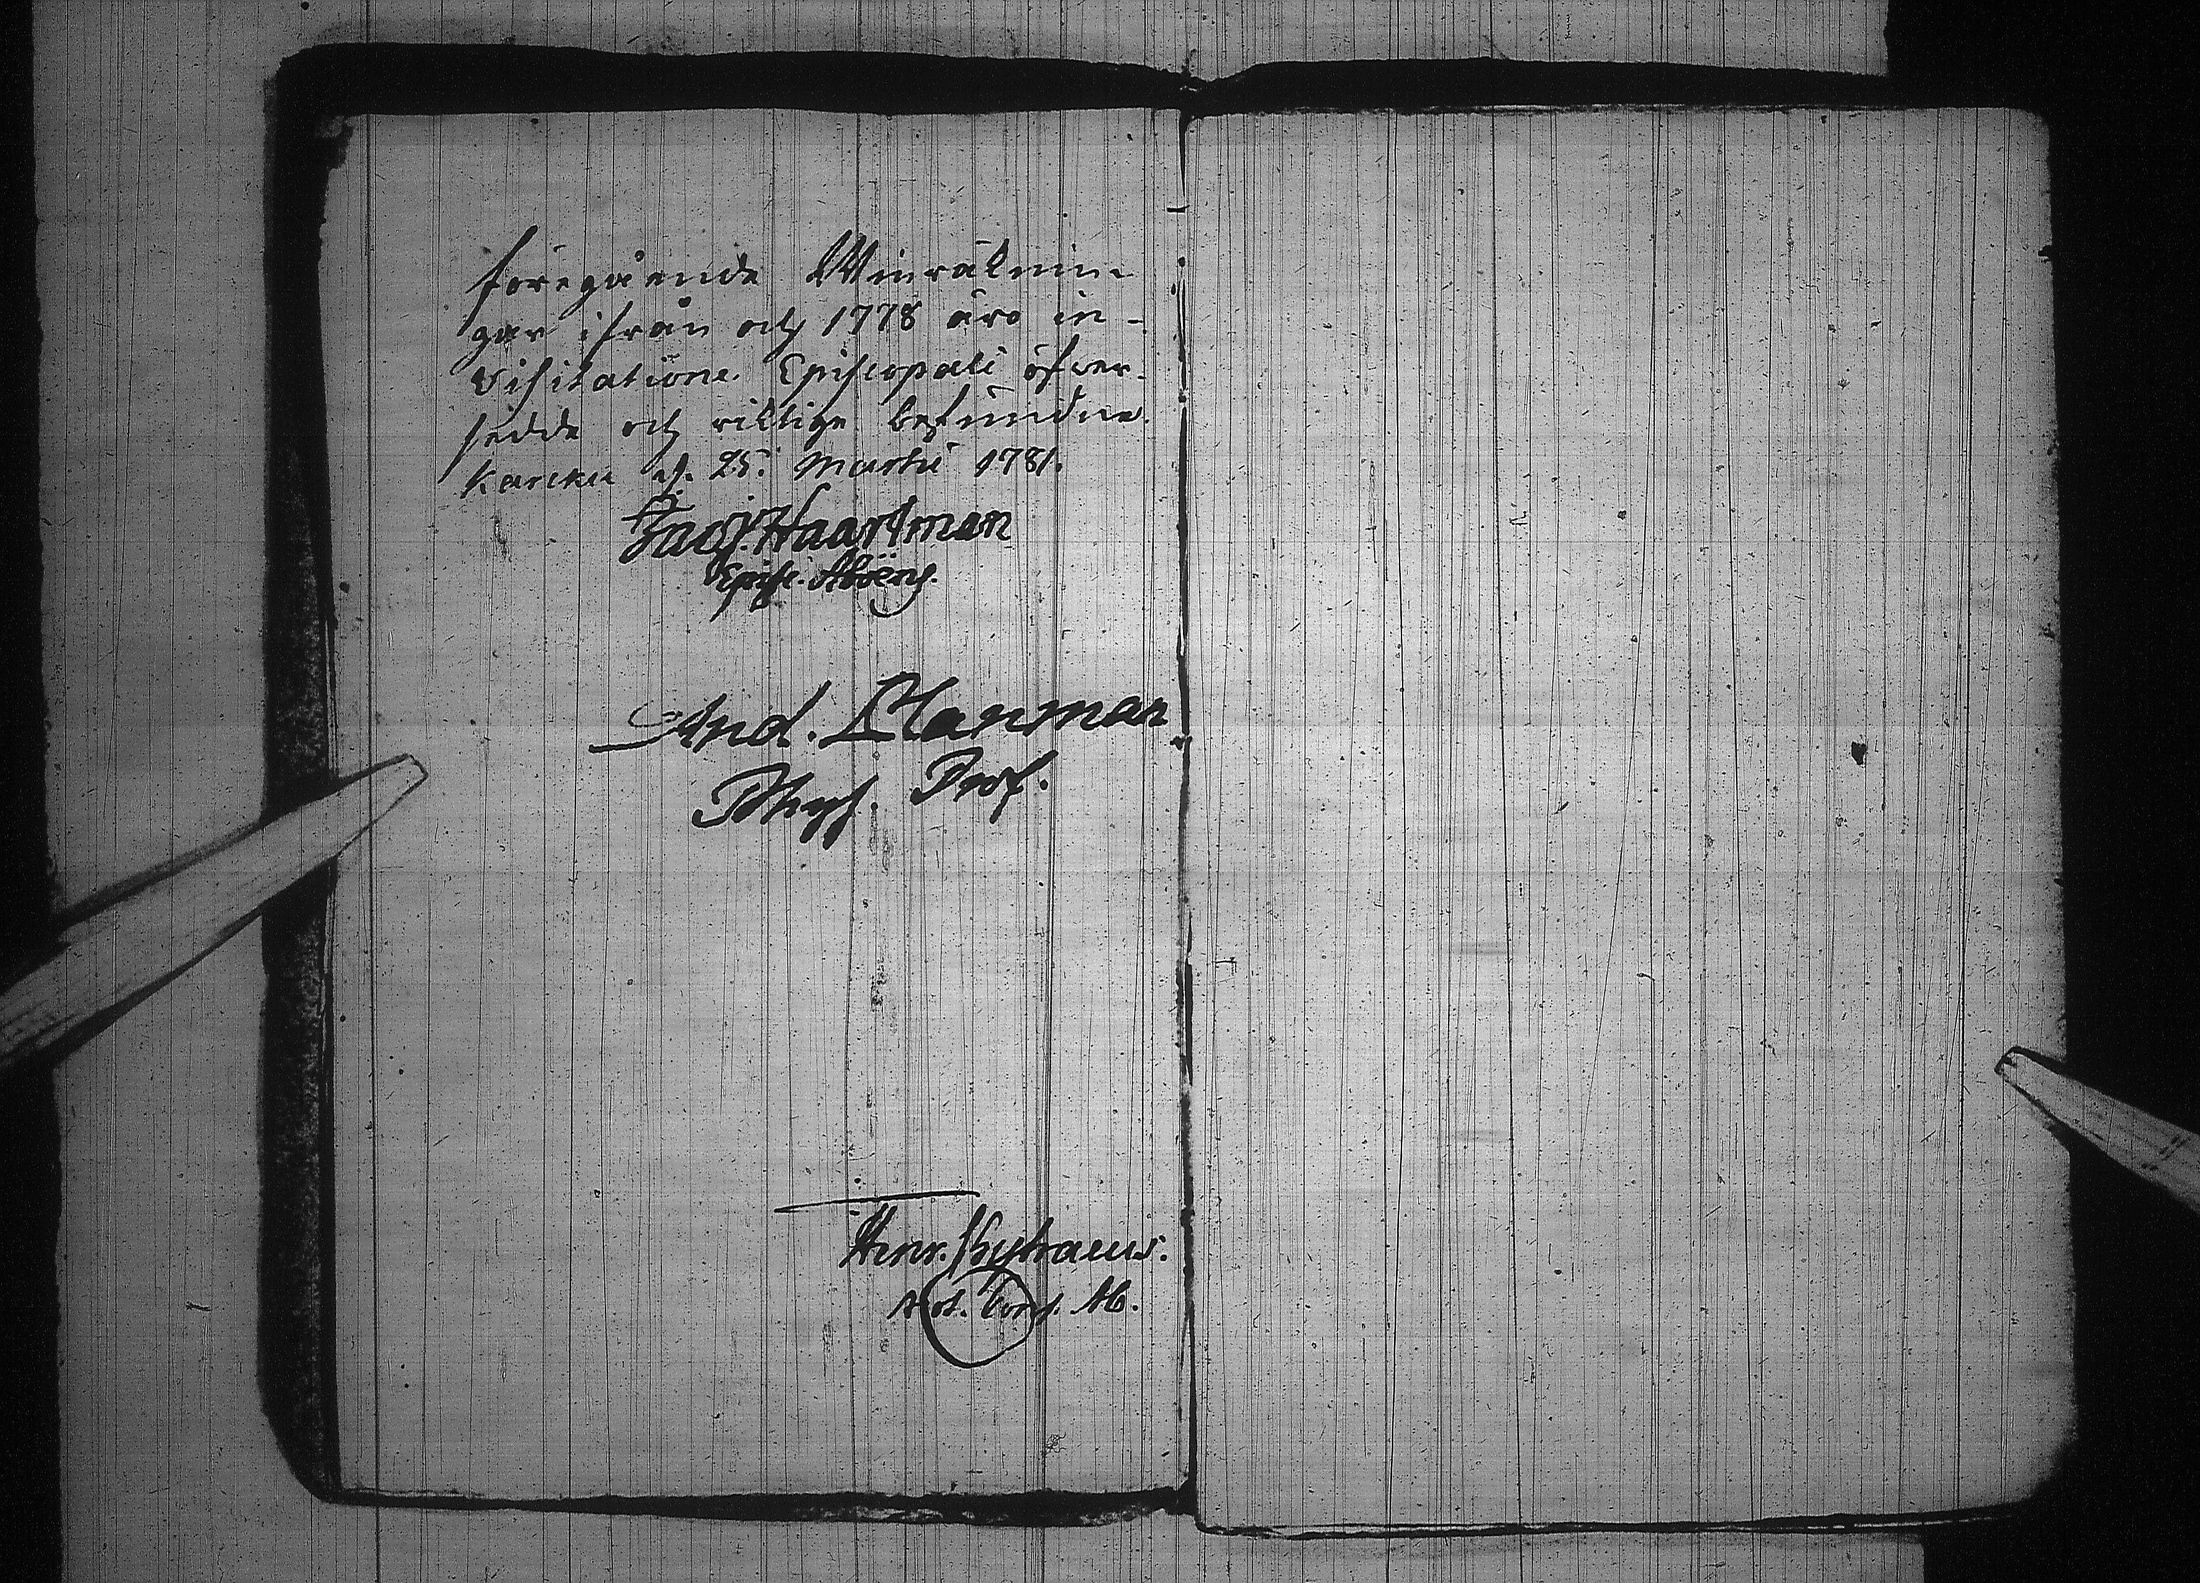 föregående Winräknin-
gar ifrån och 1778 äro in-
Visitatione Episcopali öfwer-
sedde och riktige befundne.
Karcku d. 25. Martii 1781.
Jac. Haartman
Episc. Aboëns.
And. Planman
Phys. Prof.
Henr.
Not. Cons. Ab.